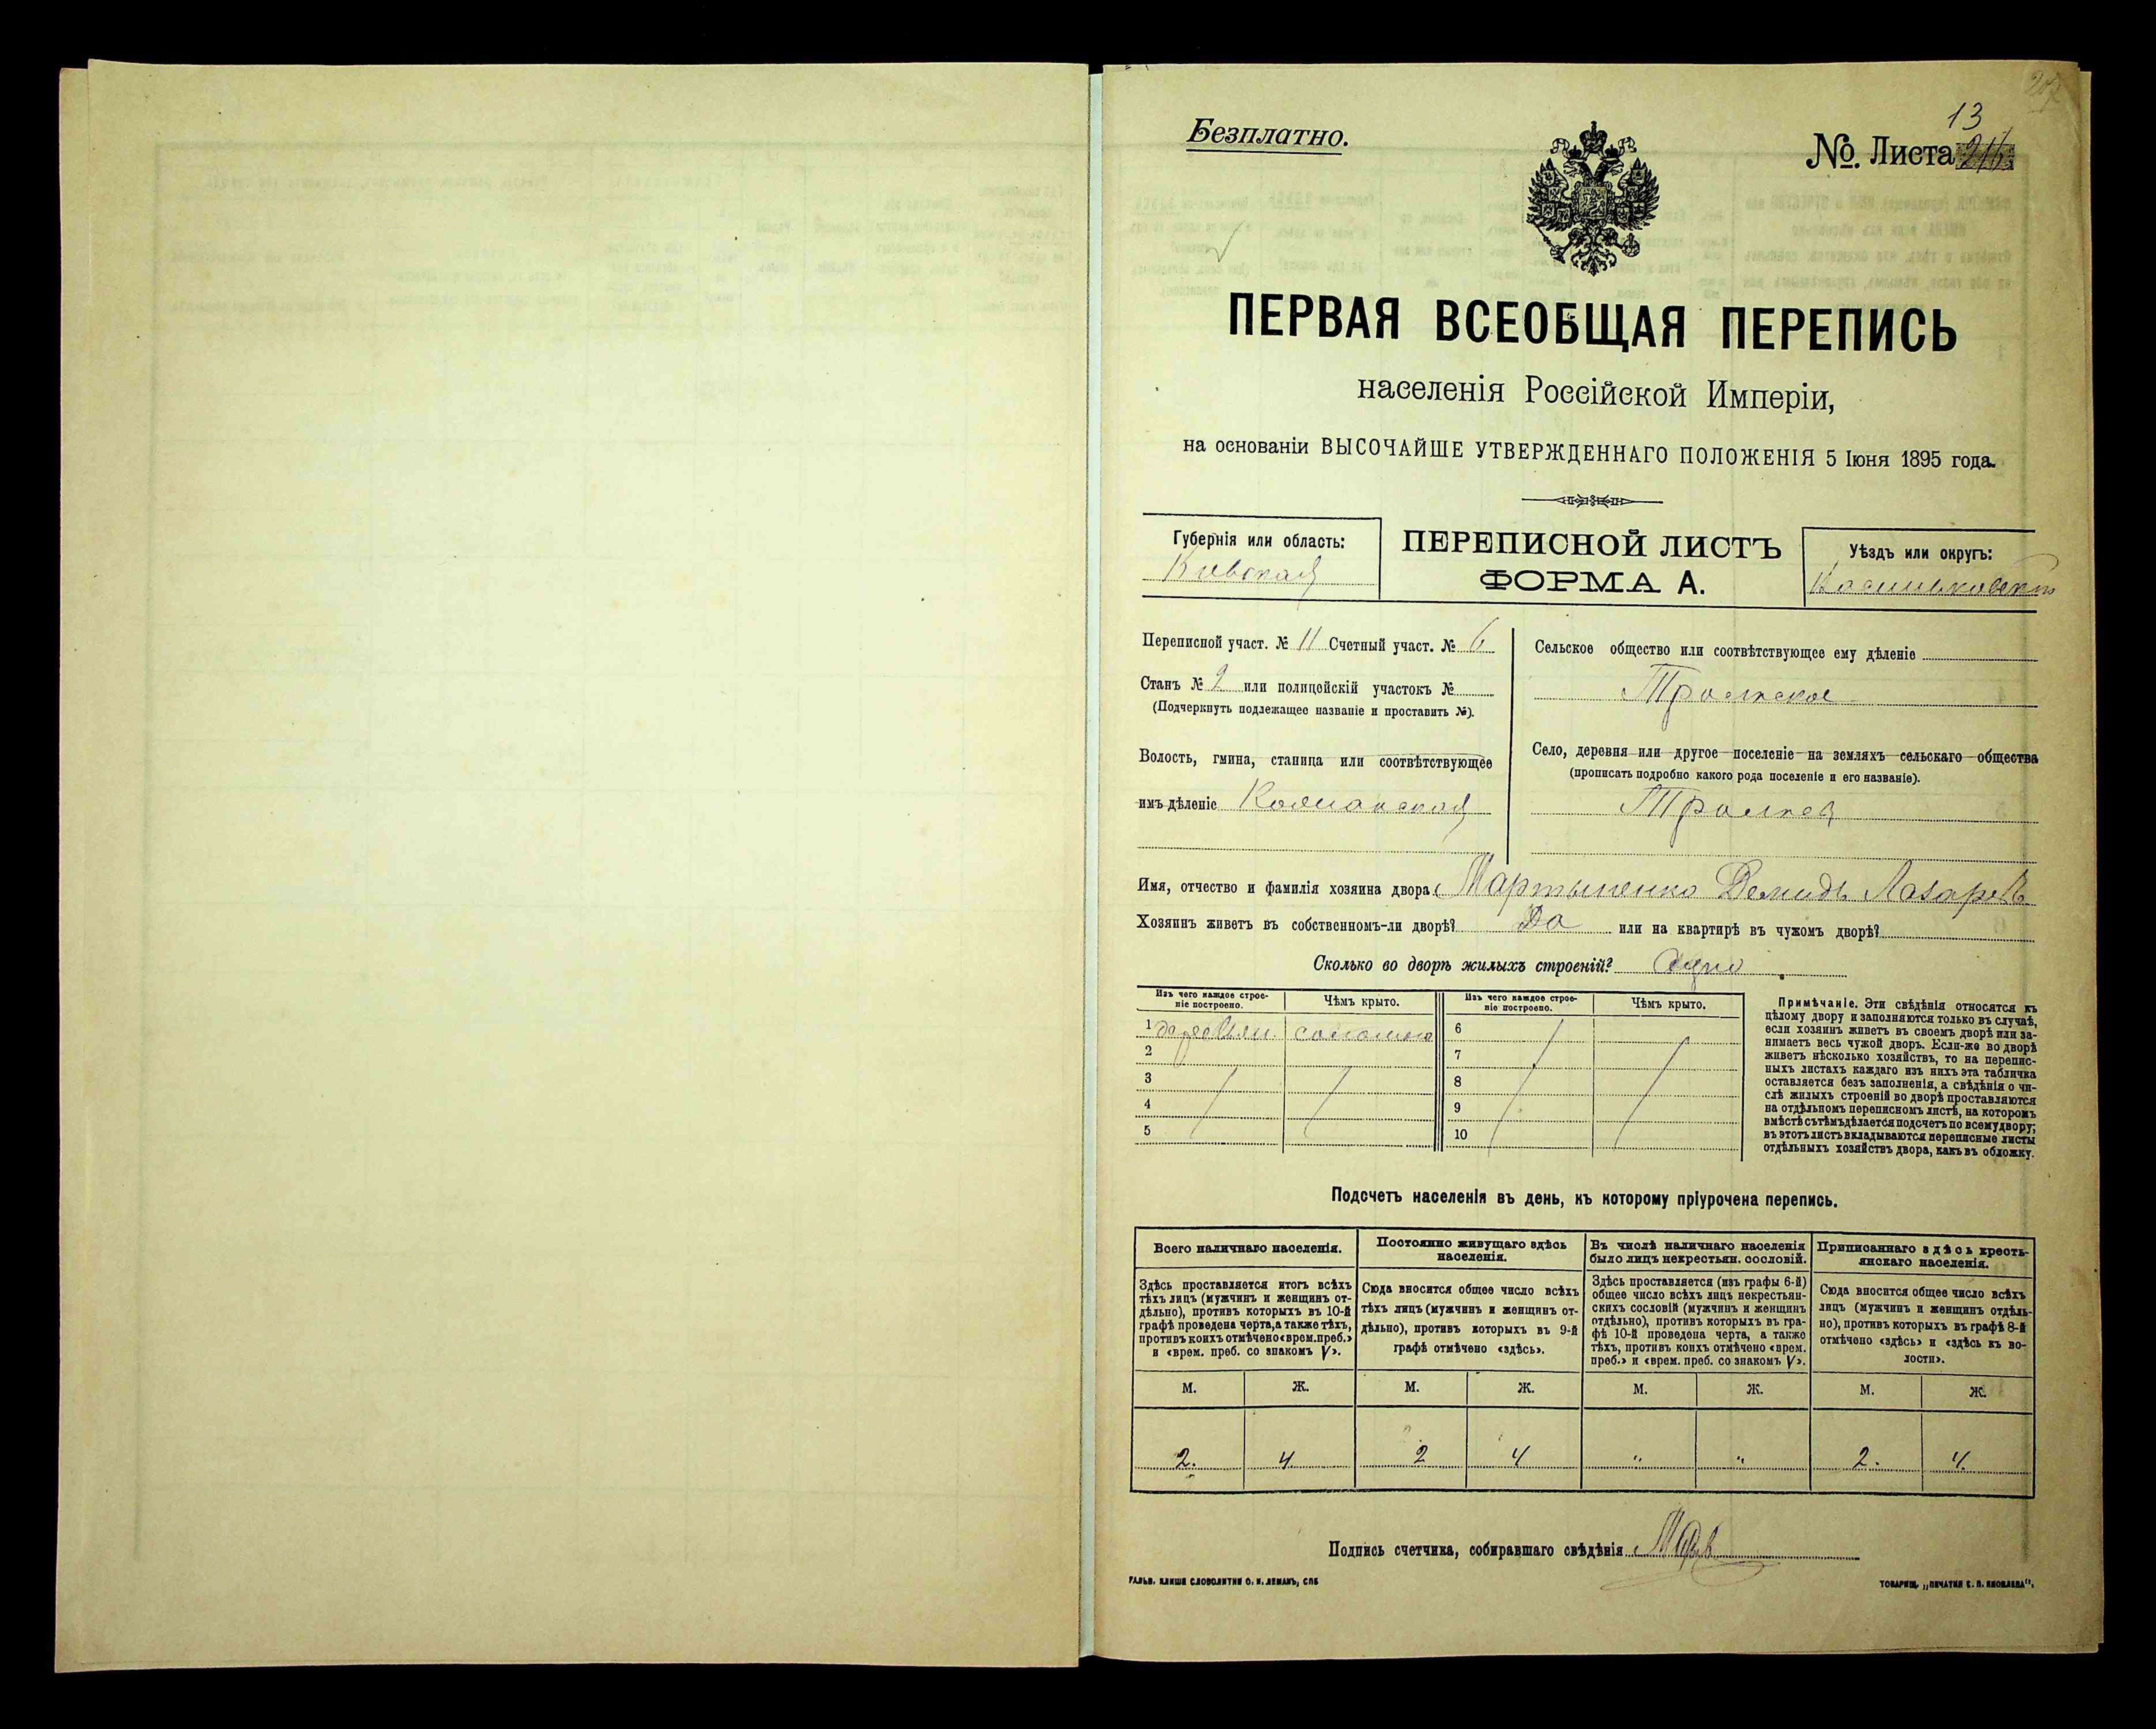 Безплатно.
13
No. Листа
ПЕРВАЯ ВСЕОБЩАЯ ПЕРЕПИСЬ
населенія Россійской Имперіи,
на основаніи ВЫСОЧАЙШЕ УТВЕРЖДЕННАГО ПОЛОЖЕНІЯ 5 Іюня 1895 года.
Губернія или область:
Кіевская
ПЕРЕПИСНОЙ ЛИСТЪ
ФОРМА А.
Уѣздъ или округъ:
Переписной участ. № 11 Счетный участ. № 6
Станъ № 2 или полицейскій участокъ №
(Подчеркнуть подлежащее названіе и проставить №).
Волость, гмина, станица или соотвѣтствующее
имъ дѣленіе
Сельское общество или соотвѣтствующее ему дѣленіе
Село, деревня или другое поселеніе на земляхъ сельскаго общества
(прописать подробно какого рода поселеніе и его названіе).
Имя, отчество и фамилія хозяина двора Мартыненко Демидъ Лазаревъ
Хозяинъ живетъ въ собственномъ-ли дворѣ? Да или на квартирѣ въ чужомъ дворѣ?
Сколько во дворѣ жилыхъ строеній? Одно
Изъ чего каждое строе-
ніе построено.
Чѣмъ крыто.
Изъ чего каждое строе-
ніе построено.
Чѣмъ крыто.
1 деревян. соломою
2
3
4
5
6
7
8
9
10
Примѣчаніе. Эти свѣдѣнія относятся къ
цѣлому двору и заполняются только въ случаѣ,
если хозяинъ живетъ въ своемъ дворѣ или за-
нимаетъ весь чужой дворъ. Если-же во дворѣ
живетъ нѣсколько хозяйствъ, то на перепис-
ныхъ листахъ каждаго изъ нихъ эта табличка
оставляется безъ заполненія, а свѣдѣнія о чи-
слѣ жилыхъ строеній во дворѣ проставляются
на отдѣльномъ переписномъ листѣ, на которомъ
вмѣстѣ съ тѣмъ дѣлается подсчетъ по всему двору;
въ этотъ листъ вкладываются переписные листы
отдѣльныхъ хозяйствъ двора, какъ въ обложку.
Подсчетъ населенія въ день, къ которому пріурочена перепись.
Всего наличнаго населенія.
Здѣсь проставляется итогъ всѣхъ
тѣхъ лицъ (мужчинъ и женщинъ от-
дѣльно), противъ которыхъ въ 10-й
графѣ проведена черта, а также тѣхъ,
противъ коихъ отмѣчено «врем. преб.»
и «врем. преб. со знакомъ V».
Постоянно живущаго здѣсь
населенія.
Сюда вносится общее число всѣхъ
тѣхъ лицъ (мужчинъ и женщинъ от-
дѣльно), противъ которыхъ въ 9-й
графѣ отмѣчено «здѣсь».
Въ числѣ наличнаго населенія
было лицъ некрестьян. сословій.
Здѣсь проставляется (изъ графы 6-й)
общее число всѣхъ лицъ некрестьян-
скихъ сословій (мужчинъ и женщинъ
отдѣльно), противъ которыхъ въ гра-
фѣ 10-й проведена черта, а также
тѣхъ, противъ коихъ отмѣчено «врем.
преб.» и «врем. преб. со знакомъ V».
Приписаннаго здѣсь кресть-
янскаго населенія.
Сюда вносится общее число всѣхъ
лицъ (мужчинъ и женщинъ отдѣль-
но), противъ которыхъ въ графѣ 8-й
отмѣчено «здѣсь» и «здѣсь въ во-
лости».
М. Ж. М. Ж. М. Ж. М. Ж.
2. 4 2 4 " " 2. 4.
Подпись счетчика, собиравшаго свѣдѣнія
ГАЛЬВ. КЛИШЕ СЛОВОЛИТНИ О. И. ЛЕМАНЪ, СПБ
ТОВАРИЩ. „ПЕЧАТНЯ С. П. ЯКОВЛЕВА".